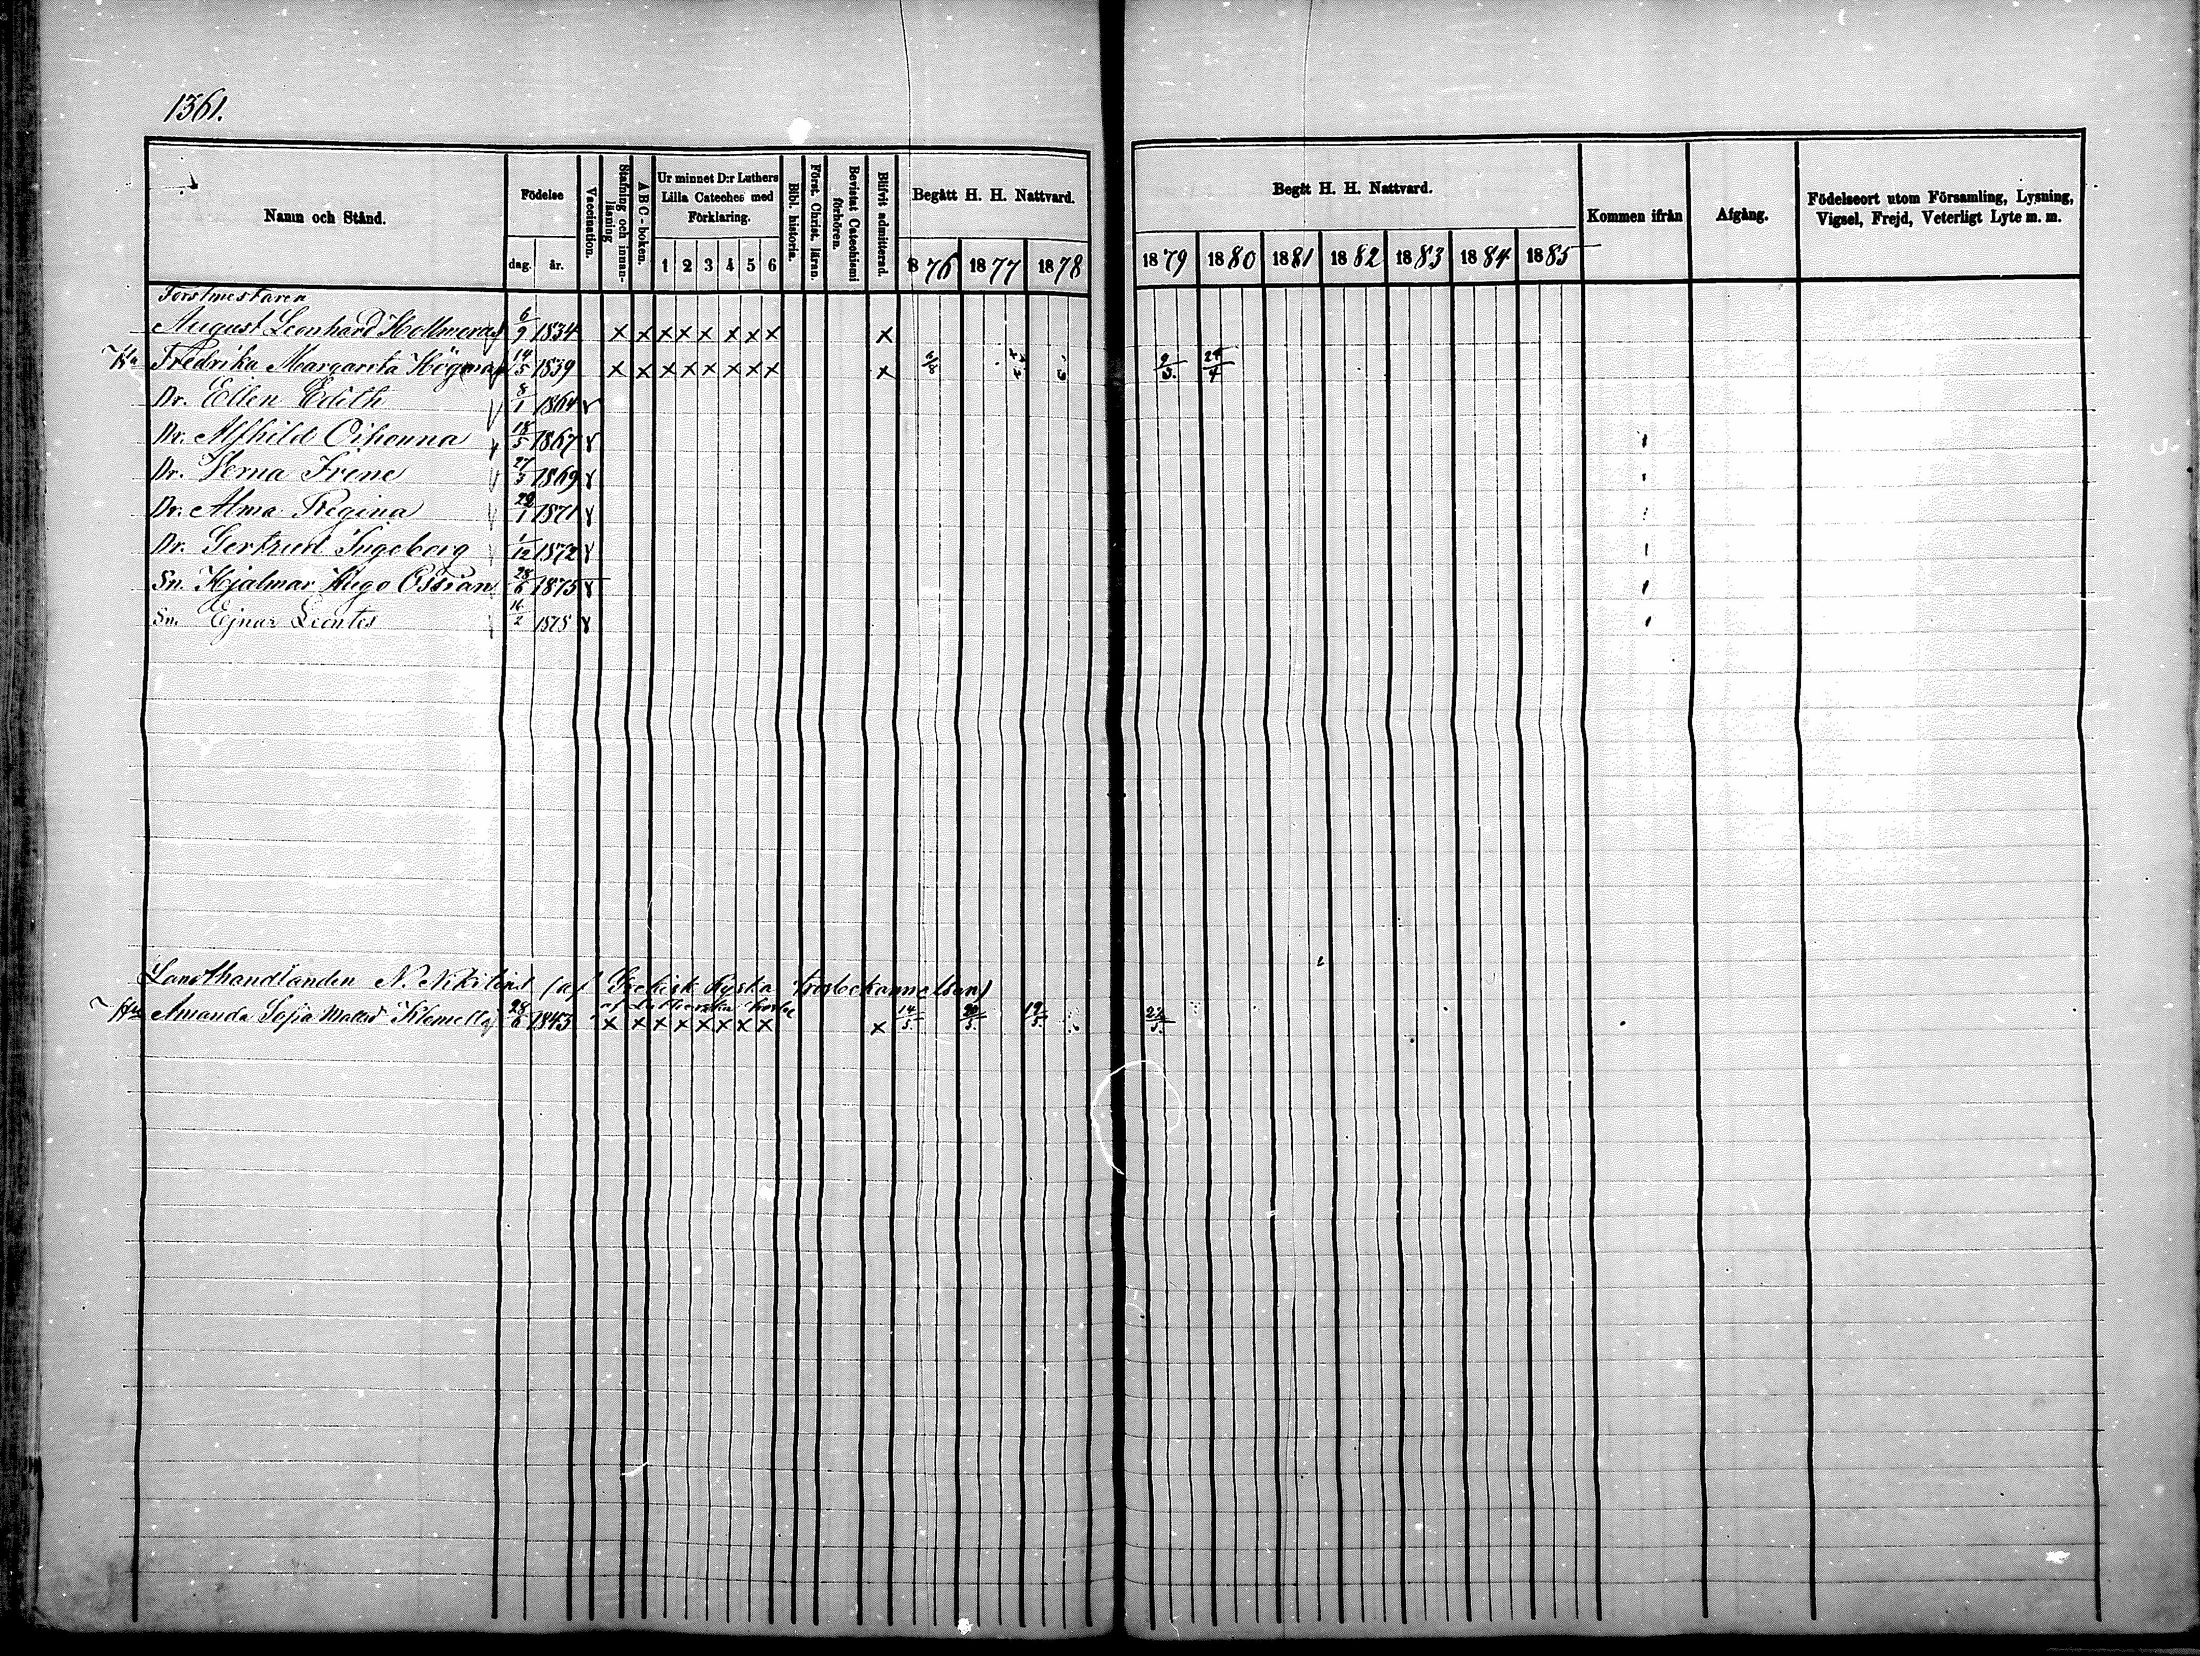 1361.
Namn och Stånd.
Födelse
dag. år.
Vaccination.
Stafning och innanläsning
ABC-boken.
Ur minnet D:r Luthers Lilla Cateches med Förklaring.
1 2 3 4 5 6
Bibl. historia.
Först. Christ. läran.
Bevistat Catechismi förhören.
Blifvit admitterad.
Begått H. H. Nattvard.
1876 1877 1878
Begåt H. H. Nattvard.
1879 1880 1881 1882 1883 1884 1885
Kommen ifrån
Afgång.
Födelseort utom Församling, Lysning, Vigsel, Frejd, Veterligt Lyte m. m.
Forstmestaren
August Leonhard 6/9 1834 x x x x x x x x x
Fredrika Margareta 14/5 1839 x x x x x x x x x 9/3 24/4
Dr. Ellen Edith 8/1 1864
Dr. Alfhild 18/5 1867
Dr. Verna Irene 27/5 1869
Dr. Alma Regina 29/1 1871
Dr. Gertrud Ingeborg 1/12 1872
Sn. Hjalmar Hugo Ossian 28/6 1875
Sn. Ejnar Leontes 16/2 1878
Landthandlanden N. (af Grekisk Ryska trosbekännelsen)
af Lutherska
Amanda Sofia 28/6 1843 x x x x x x x x x 14/5 20/5 19/5 22/5